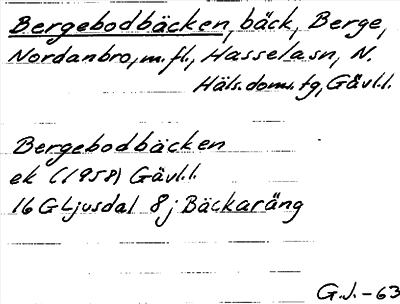 Bergebodbäcken, bäck, Berge,
Nordanbro, m.fl., Hassela sn, N.
Häls. doms. tg, Gävl.l.
Bergebodbäcken
ek (1958) Gävl.l.
16 G Ljusdal 8j Bäckaräng
G.J. - 63